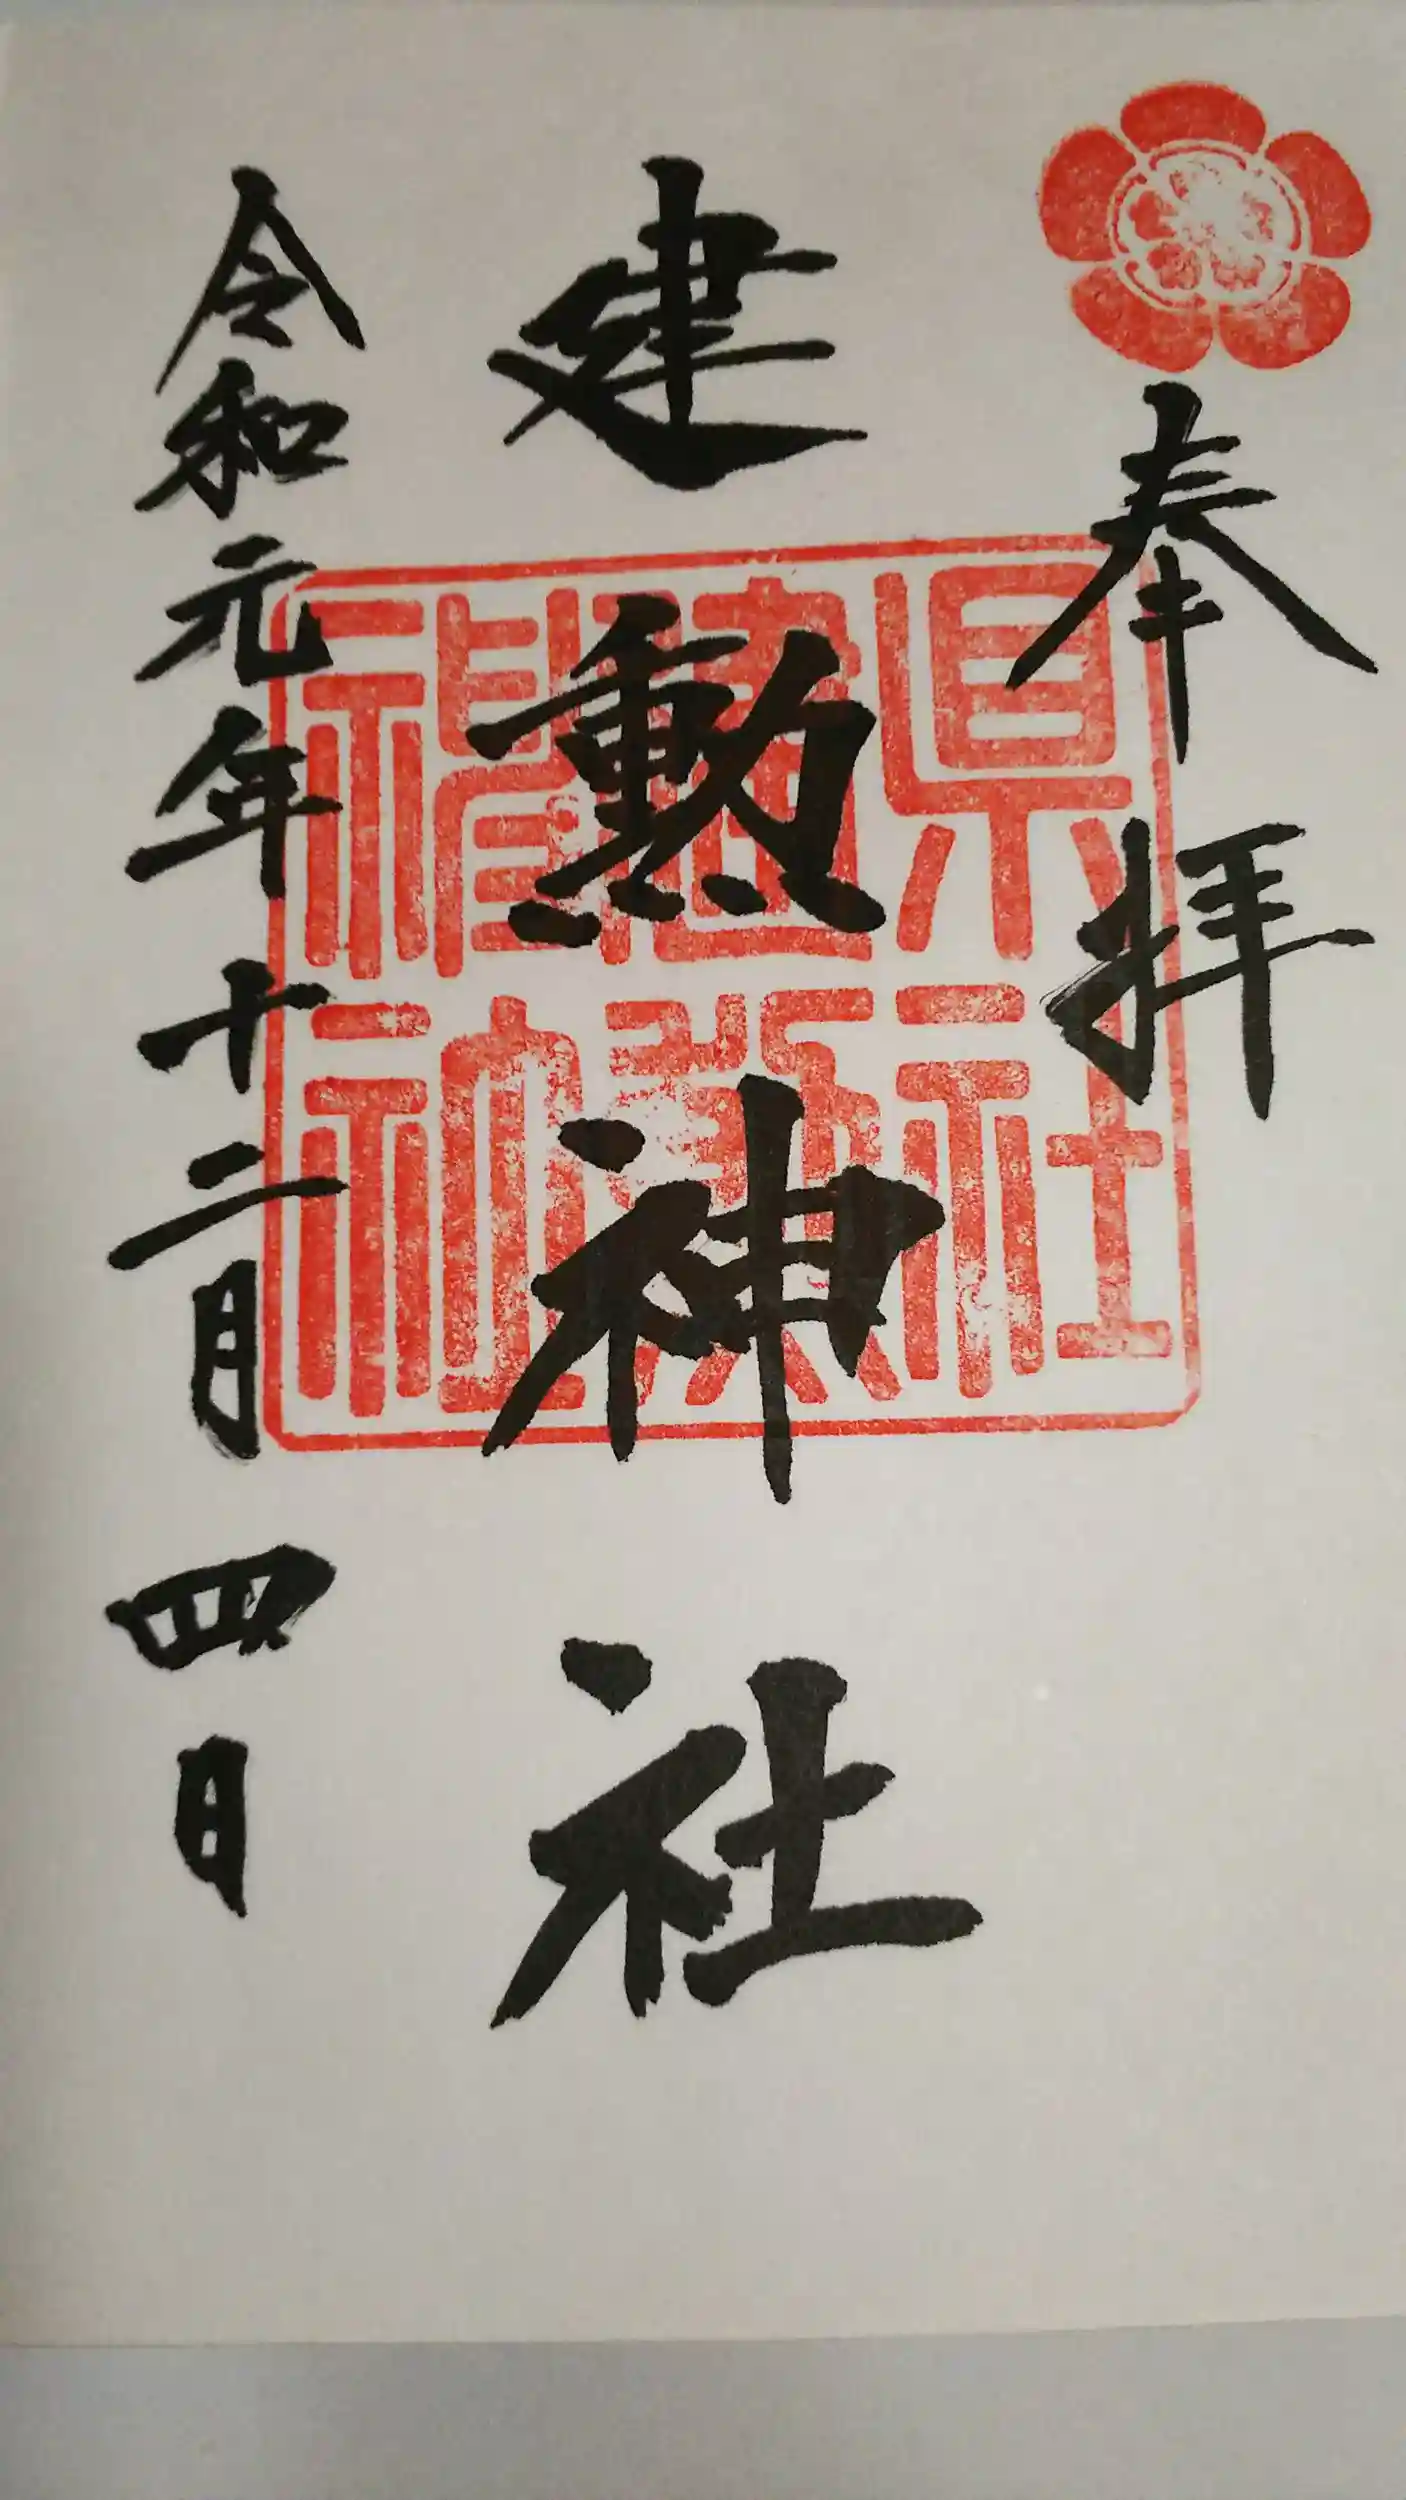 奉拝
建勲神社
令和元年十二月四日
県社
建勲
神社